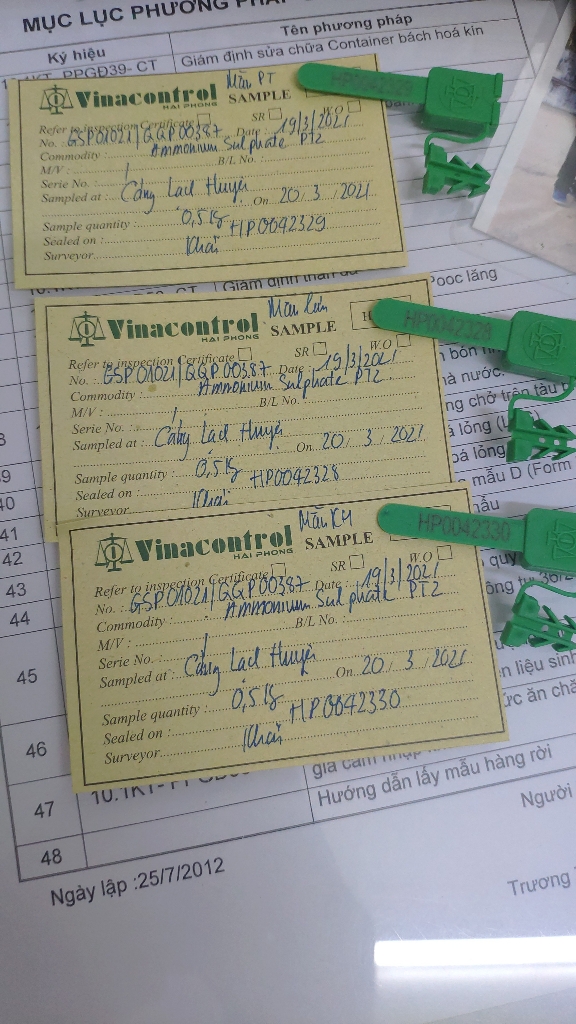 MỤC LỤC PHƯƠNG PHÁP
Ký hiệu
Tên phương pháp
PPGĐ39- CT
Giám định sửa chữa Container bách hoá kín
Mẫu PT
Vinacontrol
HAI PHONG
SAMPLE
HP0042329
Refer to inspection Certificate
SR
W.O
No. : GSP01021/GQP00387 Date : 19/3/2021
Commodity : Ammonium Sulphate PT2
M/V : / B/L No. :
Serie No. :
Sampled at : Cảng Lạch Huyện On 20 / 3 / 2021
Sample quantity : 0,5kg
Sealed on : HP0042329
Surveyor Khải
Giám định than
Pooc lăng
Mẫu lưu
Vinacontrol
HAI PHONG
SAMPLE
HP0042328
Refer to inspection Certificate
SR
W.O
No. : GSP01021/GQP00387 Date : 19/3/2021
Commodity : Ammonium Sulphate PT2
M/V : / B/L No. :
Serie No. :
Sampled at : Cảng Lạch Huyện On 20 / 3 / 2021
Sample quantity : 0,5kg
Sealed on : HP0042328
Surveyor Khải
bón
nước.
ng chở trên tàu
lỏng
lỏng
mẫu D (Form
mẫu
Mẫu KH
Vinacontrol
HAI PHONG
SAMPLE
HP0042330
Refer to inspection Certificate
SR
W.O
No. : GSP01021/GQP00387 Date : 19/3/2021
Commodity : Ammonium Sulphate PT2
M/V : / B/L No. :
Serie No. :
Sampled at : Cảng Lạch Huyện On 20 / 3 / 2021
Sample quantity : 0,5kg
Sealed on : HP0042330
Surveyor Khải
40
41
42
43
44
45
liệu sinh
ức ăn chă
46
47
Hướng dẫn lấy mẫu hàng rời
48
Người
Ngày lập :25/7/2012
Trương